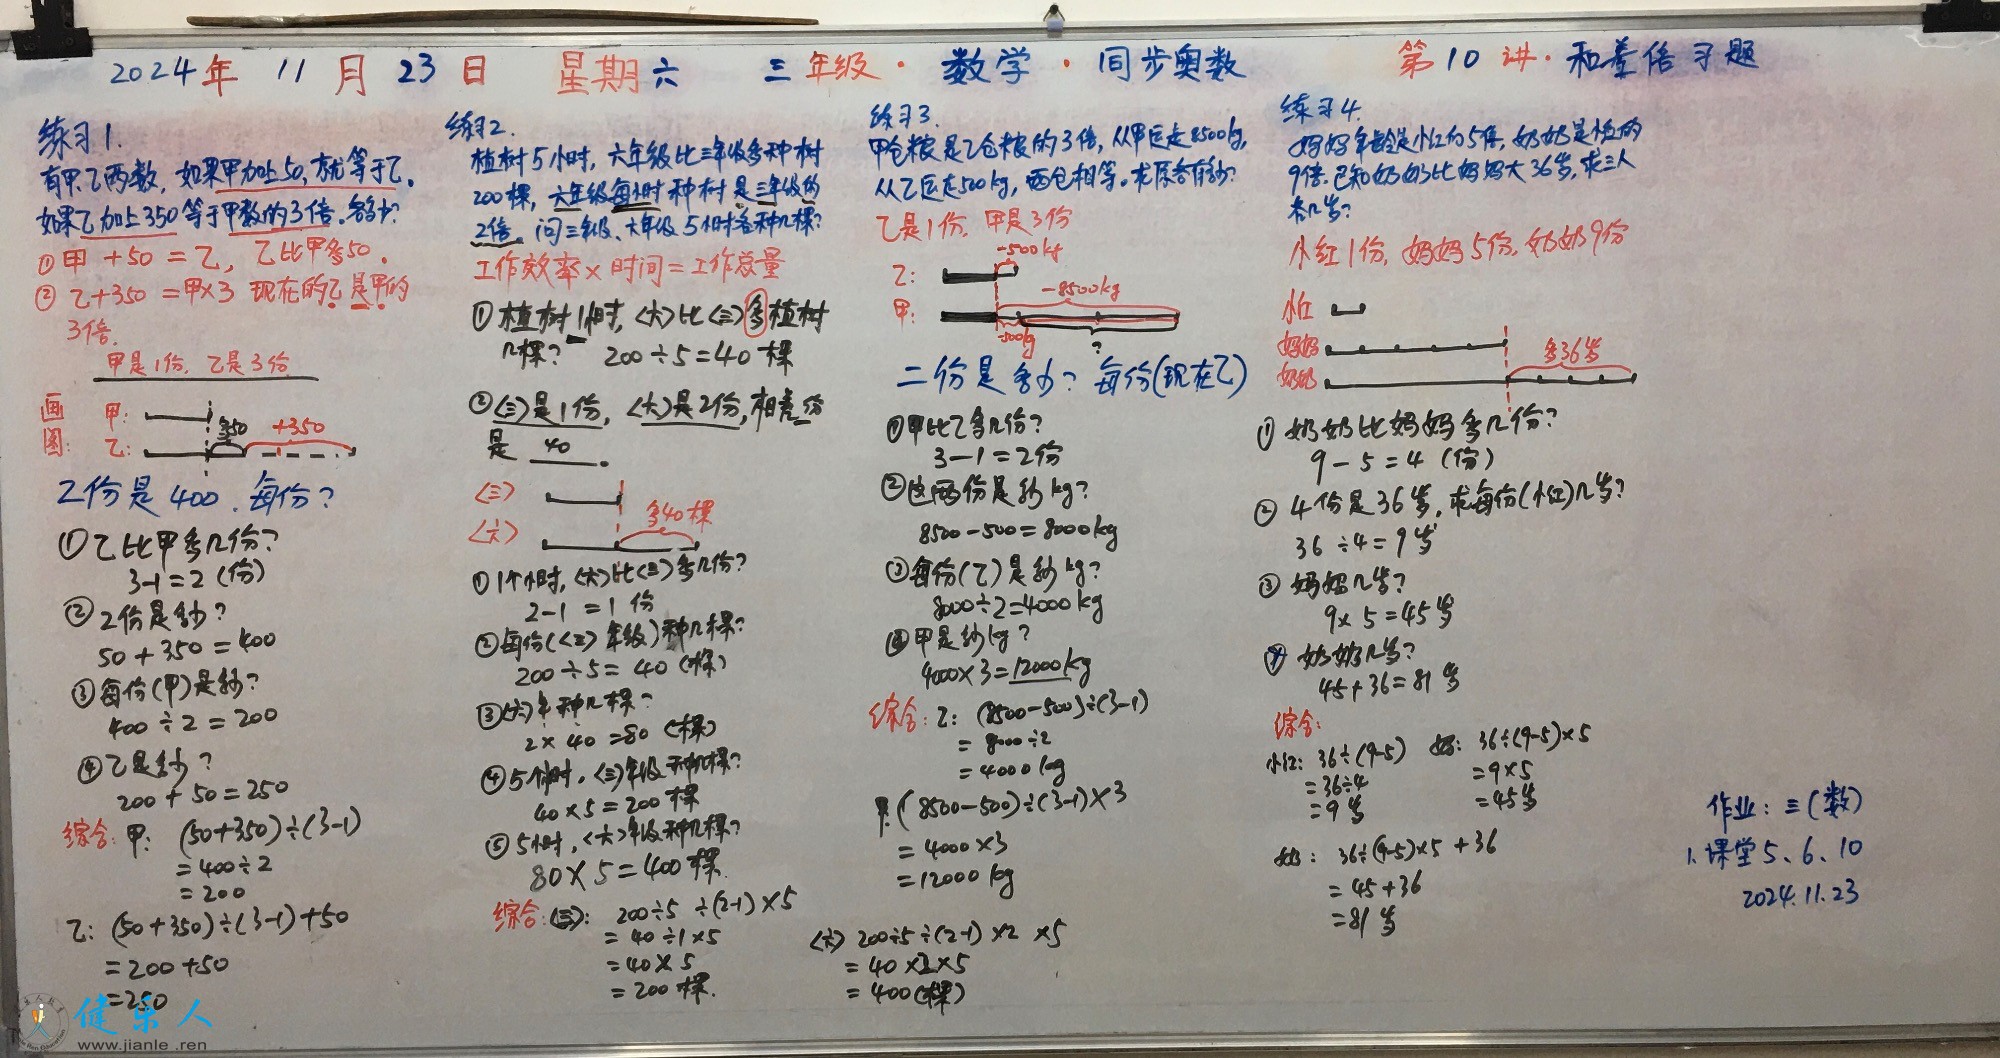 2024年 11月 23日 星期六 三年级·数学·同步奥数 第10讲·和差倍习题
练习1.
有甲.乙两数,如果甲加上50,就等于乙。
如果乙加上350等于甲数的3倍。各多少?
①甲+50=乙,乙比甲多50.
②乙+350=甲×3 现在的乙是甲的
3倍.
甲是1份,乙是3份
画图:
甲:
乙: 多50 +350
2份是400.每份?
①乙比甲多几份?
3-1=2(份)
②2份是多少?
50+350=400
③每份(甲)是多少?
400÷2=200
④乙是多少?
200+50=250
综合:甲:(50+350)÷(3-1)
=400÷2
=200
乙:(50+350)÷(3-1)+50
=200+50
=250
练习2.
植树5小时,六年级比三年级多种树
200棵,六年级每小时种树是三年级的
2倍。问三年级、六年级5小时各种几棵?
工作效率×时间=工作总量
①植树1小时,<六>比<三>多植树
几棵? 200÷5=40棵
②<三>是1份,<六>是2份,相差一份
是 40 .
<三>
<六> 多40棵
①1个小时,<六>比<三>多几份?
2-1=1份
②每份(<三>年级)种几棵?
200÷5=40(棵)
③<六>年种几棵?
2×40=80(棵)
④5个小时,<三>年级种几棵?
40×5=200棵
⑤5小时,<六>年级种几棵?
80×5=400棵.
综合:<三>: 200÷5÷(2-1)×5
=40÷1×5
=40×5
=200棵.
<六> 200÷5÷(2-1)×2×5
=40×2×5
=400(棵)
练习3.
甲仓粮是乙仓粮的3倍,从甲运走8500kg,
从乙运走500kg,两仓相等。求原各有多少?
乙是1份,甲是3份
乙: -500kg
甲: -8500kg
-500kg ?
二份是多少?每份(现在乙)
①甲比乙多几份?
3-1=2份
②这两份是多少kg?
8500-500=8000kg
③每份(乙)是多少kg?
8000÷2=4000kg
④甲是多少kg?
4000×3=12000kg
综合:乙:(8500-500)÷(3-1)
=8000÷2
=4000kg
甲:(8500-500)÷(3-1)×3
=4000×3
=12000kg
练习4.
妈妈年龄是小红的5倍,奶奶是她的
9倍.已知奶奶比妈妈大36岁,求三人
各几岁?
小红1份,妈妈5份,奶奶9份
小红
妈妈 多36岁
奶奶
①奶奶比妈妈多几份?
9-5=4(份)
②4份是36岁,求每份(小红)几岁?
36÷4=9岁
③妈妈几岁?
9×5=45岁
④奶奶几岁?
45+36=81岁
综合:
小红:36÷(9-5)
=36÷4
=9岁
妈:36÷(9-5)×5
=9×5
=45岁
奶:36÷(9-5)×5+36
=45+36
=81岁
作业:三(数)
1.课堂5、6、10
2024.11.23
健乐人
www.jianle.ren